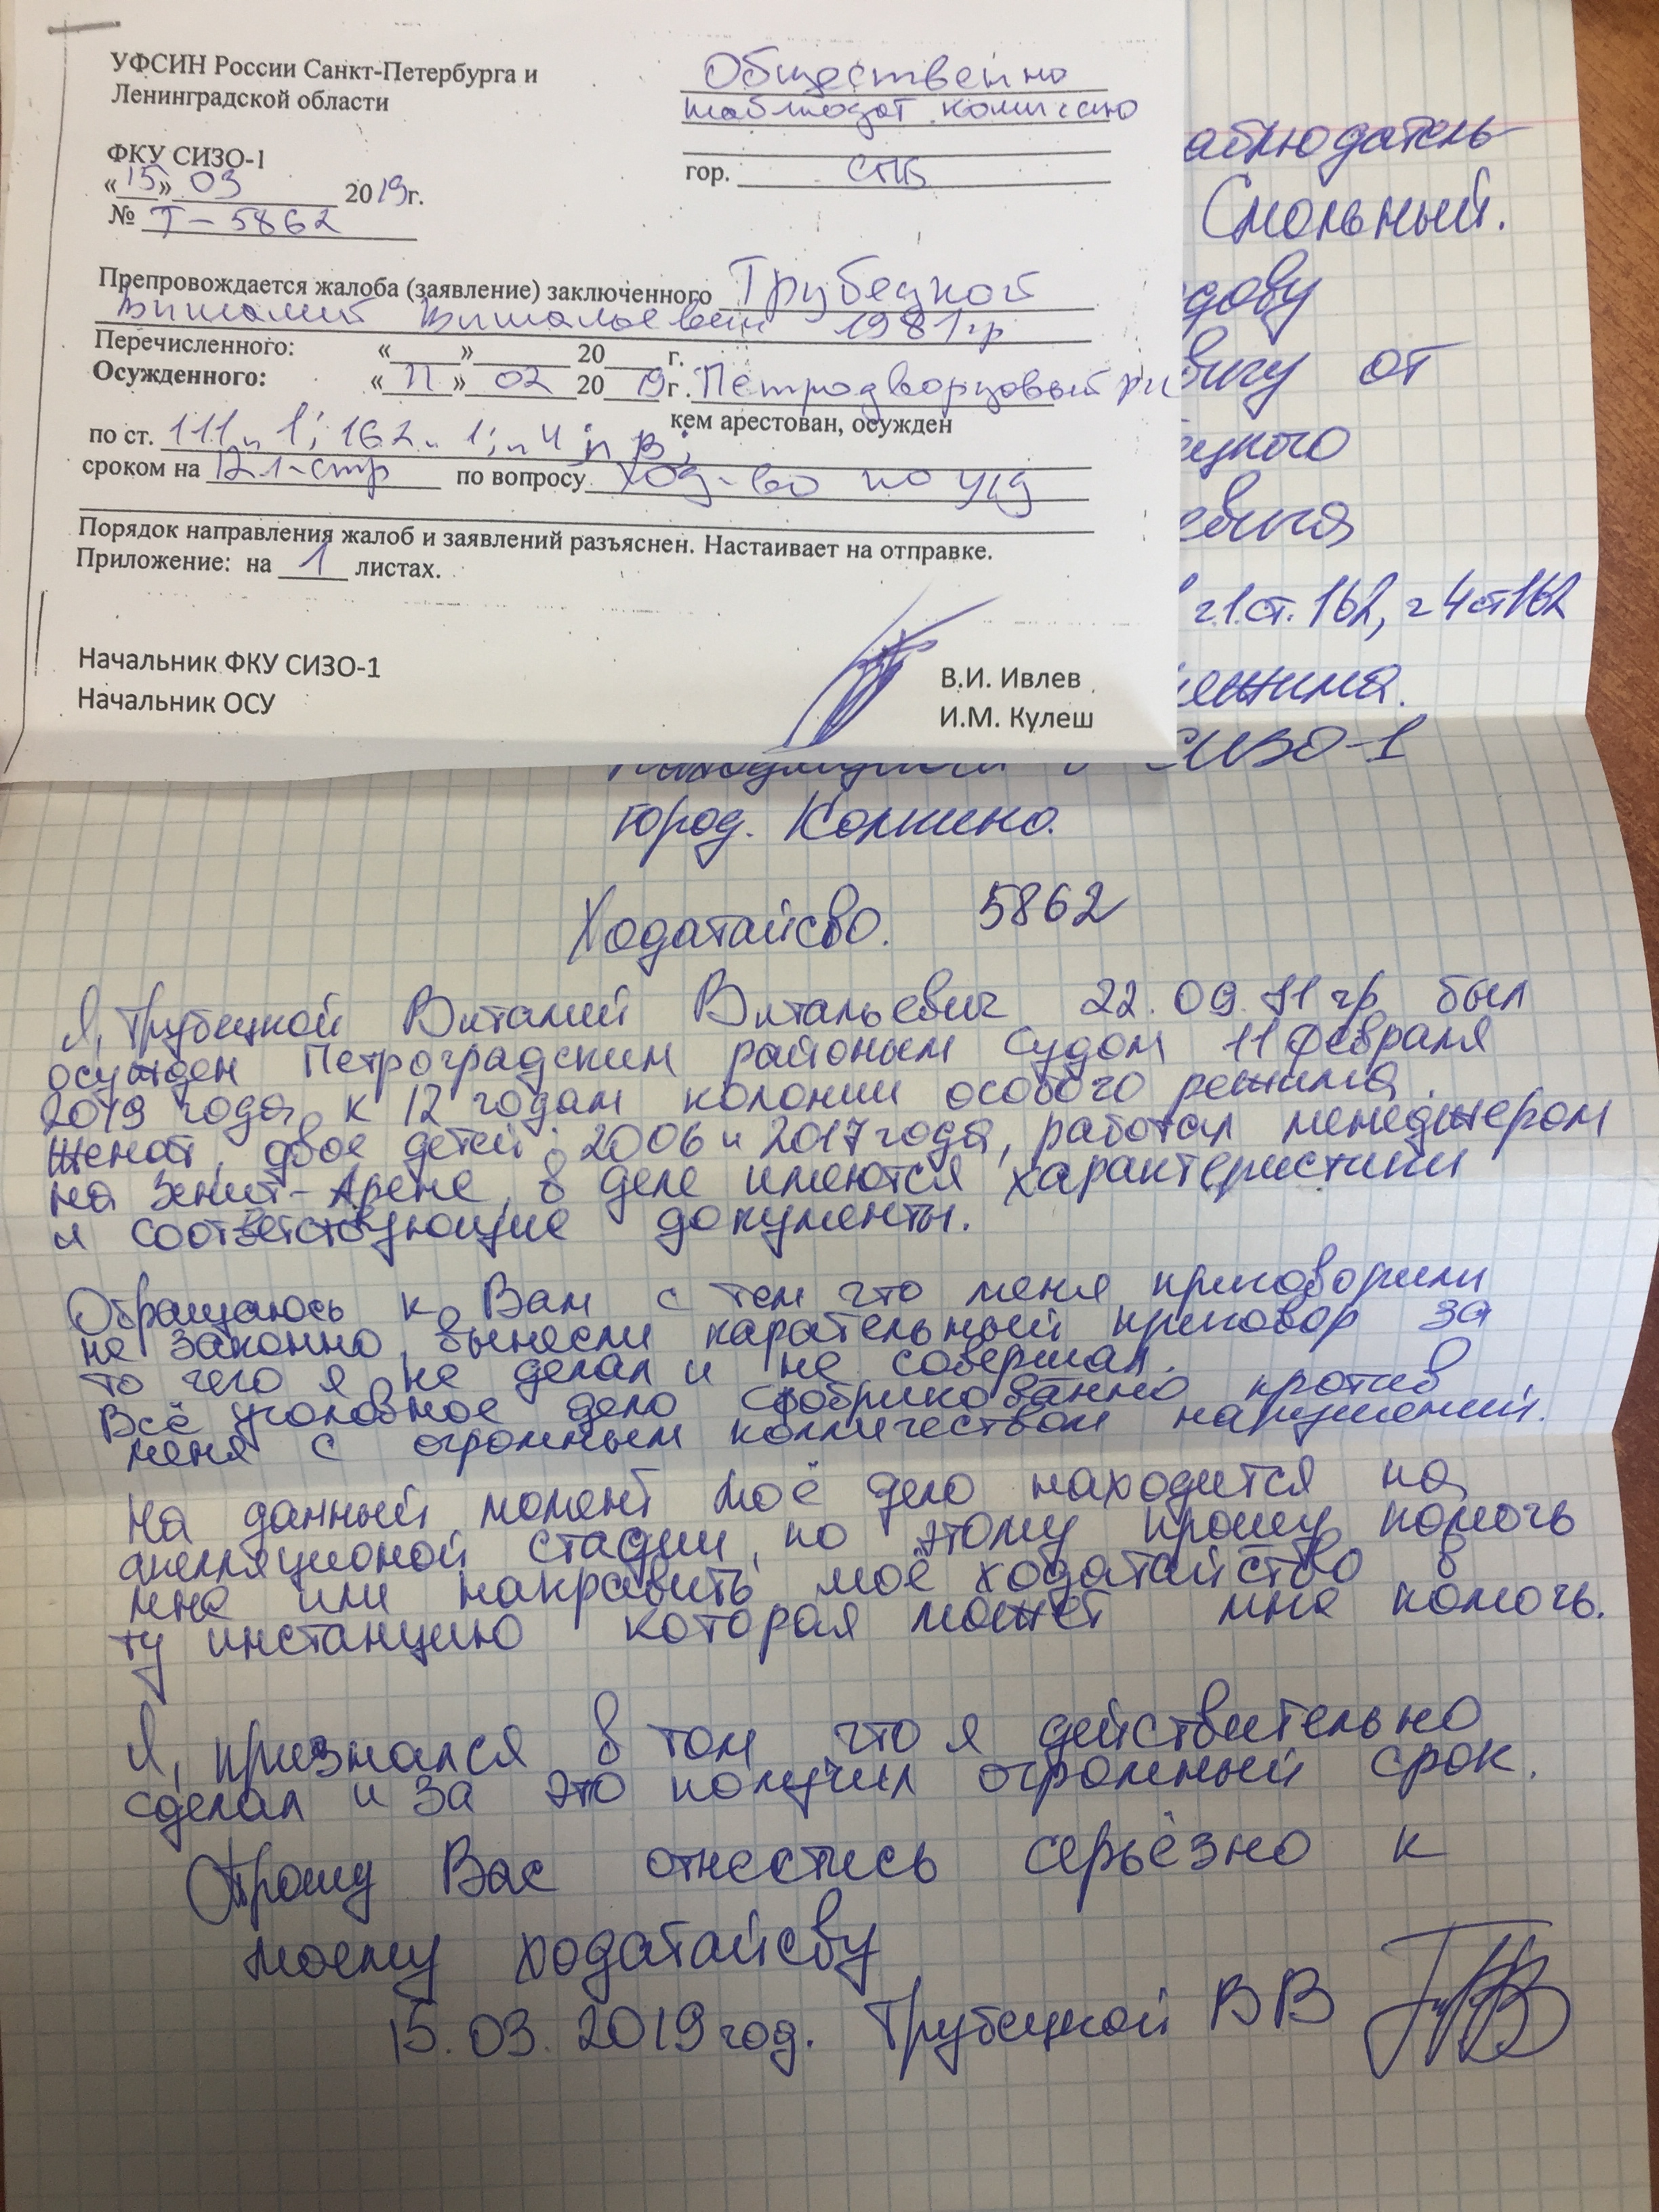 УФСИН России Санкт-Петербурга и
Ленинградской области
ФКУ СИЗО-1
«15» 03 2019г.
№ Т-5862
Общественно
наблюдат. комиссию
гор. СПБ
Препровождается жалоба (заявление) заключенного Трубецкой
Виталий Витальевич 1981гр
Перечисленного: «    »      20    г.
Осужденного: «11» 02 2019г. Петродворцовый
кем арестован, осужден
по ст. 111ч 1; 162ч 1; ч 4 п В;
сроком на 12л-стр по вопросу ход-во по уд
Порядок направления жалоб и заявлений разъяснен. Настаивает на отправке.
Приложение: на 1 листах.
Начальник ФКУ СИЗО-1
Начальник ОСУ
В.И. Ивлев
И.М. Кулеш
аблюдатель-
Смольный.
дову
вичу от
ецкого
евича
ч1.ст.162, ч4ст162
режима.
СИЗО-1
город. Колпино.
Ходатайсво. 5862
Я, Трубецкой Виталий Витальевич 22.09.81гр был
осужден Петроградским районым судом 11 февраля
2019 года, к 12 годам колонии особого режима.
Женат, двое детей: 2006 и 2017 года, работал менеджером
на Зенит-Арене, в деле имеются характеристики
и соответствующие документы.
Обращаюсь к Вам с тем что меня приговорили
не законно, вынесли карательный приговор за
то чего я не делал и не совершал.
Всё уголовное дело сфобрикованно против
меня с огромным колличеством нарушений.
На данный момент моё дело находится на
апелляционой стадии, по этому прошу помочь
мне или направить моё ходатайство в
ту инстанцию которая может мне помочь.
Я, признался в том что я действительно
сделал и за это получил огромный срок.
Прошу Вас отнестись серьёзно к
моему ходатайсву
15.03.2019год. Трубецкой ВВ